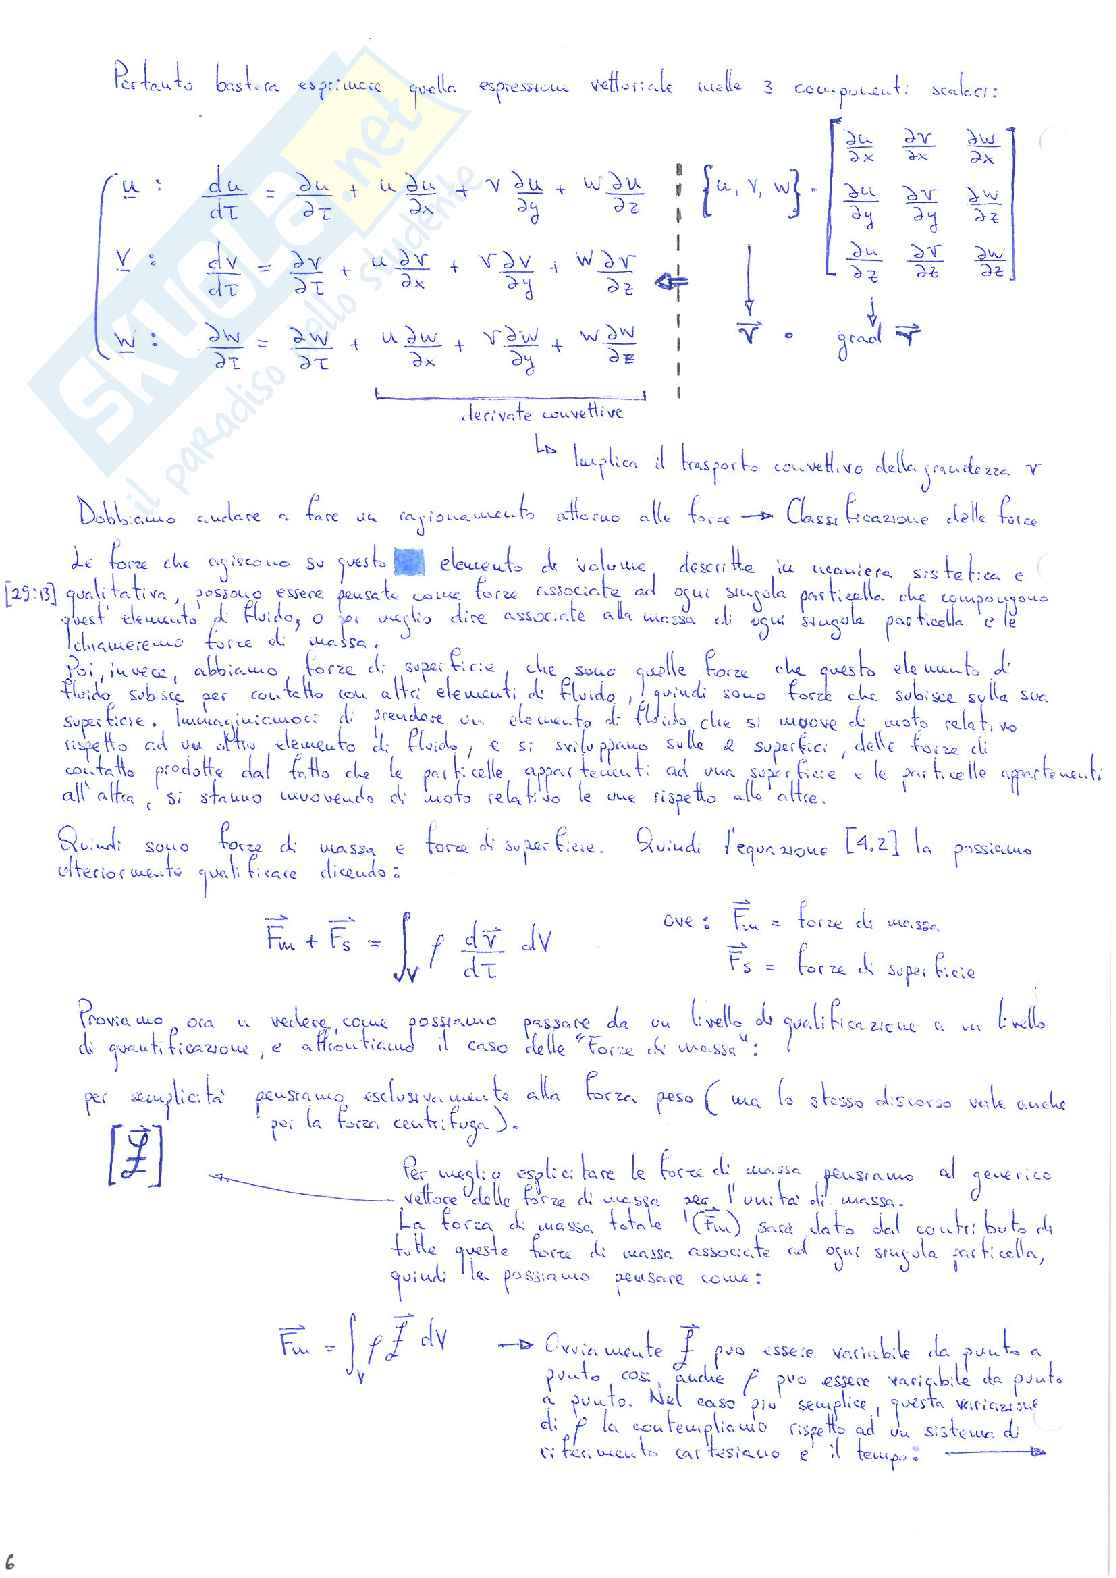 Pertanto basterà esprimere quella espressione vettoriale nelle 3 componenti scalari:
u : du/dτ = ∂u/∂τ + u ∂u/∂x + v ∂u/∂y + w ∂u/∂z
{u, v, w} · [∂u/∂x ∂v/∂x ∂w/∂x
∂u/∂y ∂v/∂y ∂w/∂z
∂u/∂z ∂v/∂z ∂w/∂z]
v : dv/dτ = ∂v/∂τ + u ∂v/∂x + v ∂v/∂y + w ∂v/∂z ⇐
w : ∂w/∂τ = ∂w/∂τ + u ∂w/∂x + v ∂w/∂y + w ∂w/∂z
v⃗ · grad v⃗
derivate convettive
↳ Implica il trasporto convettivo della grandezza v
Dobbiamo andare a fare un ragionamento attorno alle forze → Classificazione delle forze
Le forze che agiscono su questo elemento di volume, descritte in maniera sistetica e
[29:13] qualitativa, possono essere pensate come forze associate ad ogni singola particella che compongono
quest'elemento di fluido, o per meglio dire associate alla massa di ogni singola particella e le
chiameremo forze di massa.
Poi, invece, abbiamo forze di superficie, che sono quelle forze che questo elemento di
fluido subisce per contatto con altri elementi di fluido, quindi sono forze che subisce sulla sua
superficie. Immaginiamoci di prendere un elemento di fluido che si muove di moto relativo
rispetto ad un altro elemento di fluido, e si sviluppano sulle 2 superfici, delle forze di
contatto prodotte dal fatto che le particelle appartementi ad una superficie e le particelle appartementi
all'altra, si stanno muovendo di moto relativo le une rispetto alle altre.
Quindi sono forze di massa e forze di superficie. Quindi l'equazione [4.2] la possiamo
ulteriormente qualificare dicendo:
F⃗m + F⃗s = ∫V ρ dv⃗/dτ dV
ove: F⃗m = forze di massa
F⃗s = forze di superficie
Proviamo, ora a vedere, come possiamo passare da un livello di qualificazione a un livello
di quantificazione, e affrontiamo il caso delle "Forze di massa":
per semplicità pensiamo esclusivamente alla forza peso (ma lo stesso discorso vale anche
per la forza centrifuga).
[f⃗]
Per meglio esplicitare le forze di massa pensiamo al generico
vettore delle forze di massa per l'unità di massa.
La forza di massa totale (F⃗m) sarà dato dal contributo di
tutte queste forze di massa associate ad ogni singola particella,
quindi la possiamo pensare come:
F⃗m = ∫V ρ f⃗ dV → Ovviamente f⃗ può essere variabile da punto a
punto così, anche ρ può essere variabile da punto
a punto. Nel caso più semplice, questa variazione
di ρ la contempliamo rispetto ad un sistema di
riferimento cartesiano e il tempo: →
6
SKUOLA.net
il paradiso dello studente